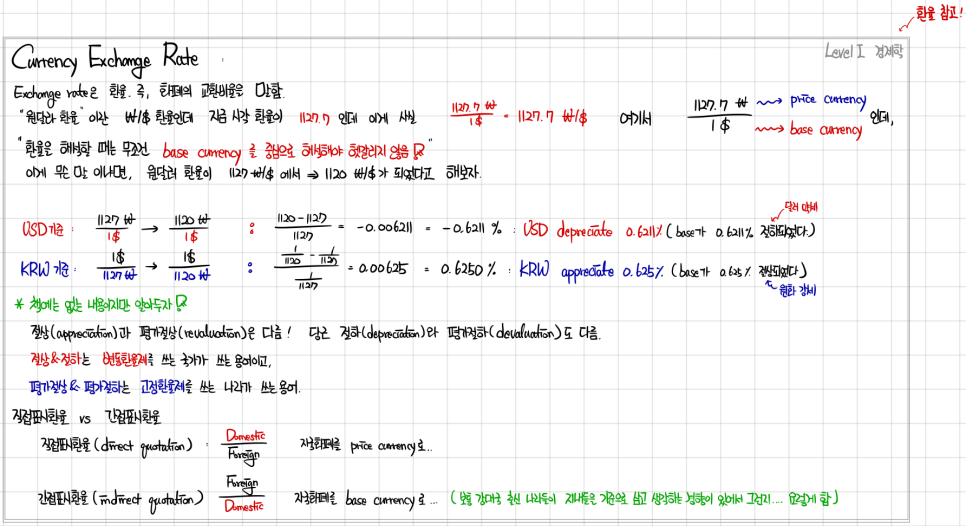 환율 참고!
Level I 경제학
Currency Exchange Rate
Exchange rate은 환율. 즉, 화폐의 교환비율은 말함.
"원달라 환율" 이란 ₩/$ 환율인데 지금 시장 환율이 1127.7 인데 이게 사실 1127.7 ₩ / 1 $ = 1127.7 ₩/$ 여기서 1127.7 ₩ / 1 $ → price currency → base currency 인데,
"환율은 해석할 때는 무조건 base currency 를 중심으로 해석해야 헷갈리지 않음"
이게 무슨 말 이냐면, 원달러 환율이 1127 ₩/$ 에서 ⇒ 1120 ₩/$ 가 되었다고 해보자.
달러 약세
USD 기준 : 1127 ₩ / 1 $ → 1120 ₩ / 1 $ : 1120 - 1127 / 1127 = -0.006211 = -0.6211 % : USD depreciate 0.6211% (base가 0.6211% 절하되었다.)
KRW 기준 : 1$ / 1127 ₩ → 1$ / 1120 ₩ : 1/1120 - 1/1127 / 1/1127 = 0.00625 = 0.6250 % : KRW appreciate 0.625% (base가 0.625% 절상되었다)
원화 강세
* 책에는 없는 내용이지만 알아두자
절상(appreciation)과 평가절상(revaluation)은 다름! 당근 절하(depreciation)와 평가절하(devaluation)도 다름.
절상&절하는 변동환율제를 쓰는 국가가 쓰는 용어이고,
평가절상 & 평가절하는 고정환율제를 쓰는 나라가 쓰는 용어.
직접표시환율 vs 간접표시환율
직접표시환율 (direct quotation) : Domestic / Foreign 자국화폐를 price currency로...
간접표시환율 (indirect quotation) Foreign / Domestic 자국화폐를 base currency로 ... (보통 강대국 출신 나라들이 지네들은 기준으로 삼고 생각하는 경향이 있어서 그런지.... 요렇게 함)